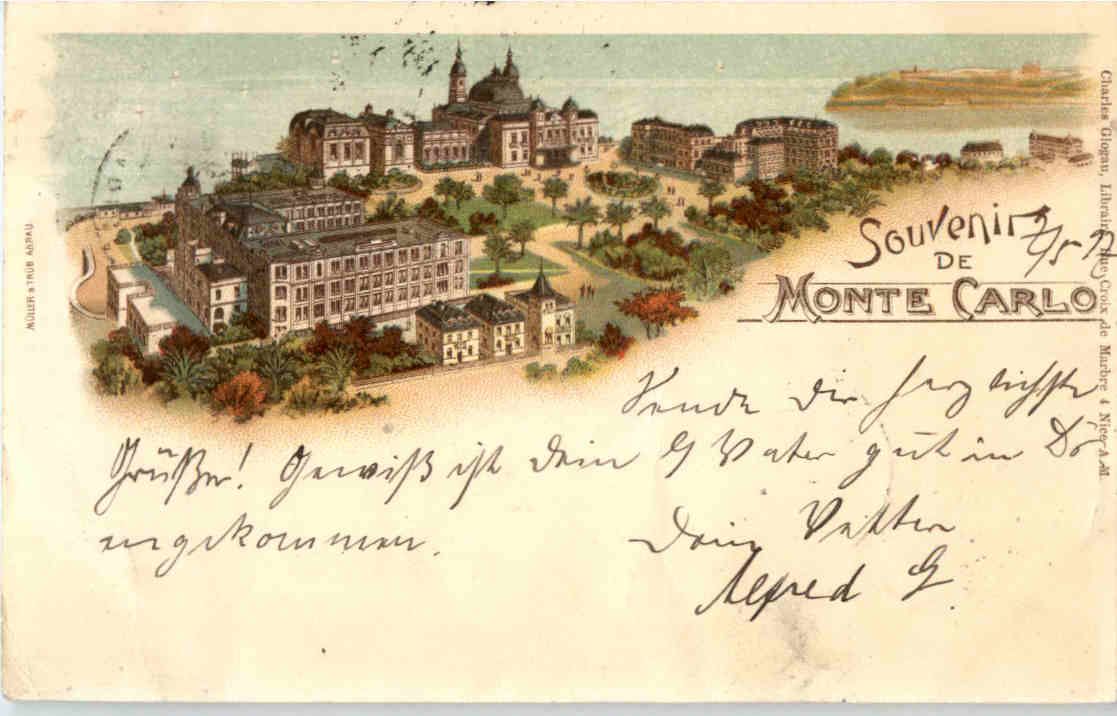 MÜLLER & TRÜB AARAU
Souvenir
DE
MONTE CARLO
Charles Glogau, Librairie Rue Croix de Marbre 4 Nice A.M.
Sende dir herzlichste
Grüße! Gewiß ist dein G Vater gut in
angekommen.
Dein Vetter
Alfred G.